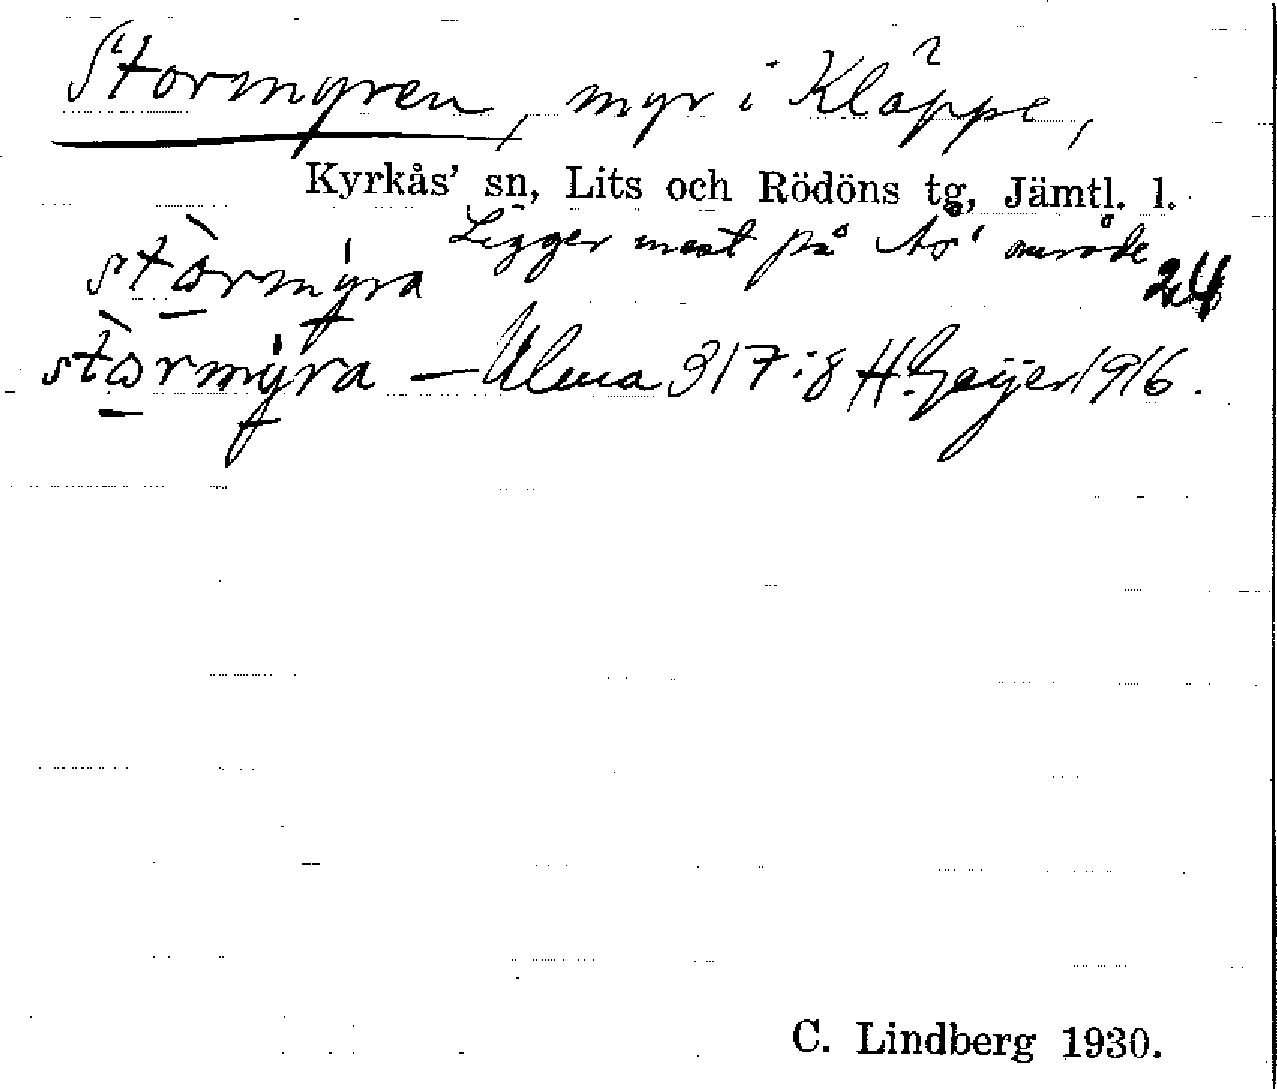 Stormyren, myr i Kläppe,
Kyrkås' sn, Lits och Rödöns tg, Jämtl. l.
Ligger mest på Ås' område
stòrmýra
24
stòrmýra — Ulma 317:8 H. Geijer 1916.
C. Lindberg 1930.